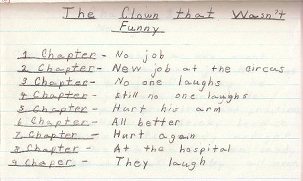 The Clown that Wasn't
Funny
1 Chapter - No job
2 Chapter - New job at the circus
3 Chapter - No one laughs
4 Chapter - still no one laughs
5 Chapter - Hurt his arm
6 Chapter - All better
7 Chapter - Hurt again
8 Chapter - At the hospital
9 Chaper - They laugh